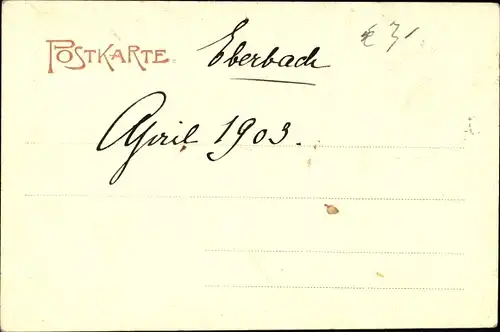 POSTKARTE Eberbach € 3,-
April 1903.